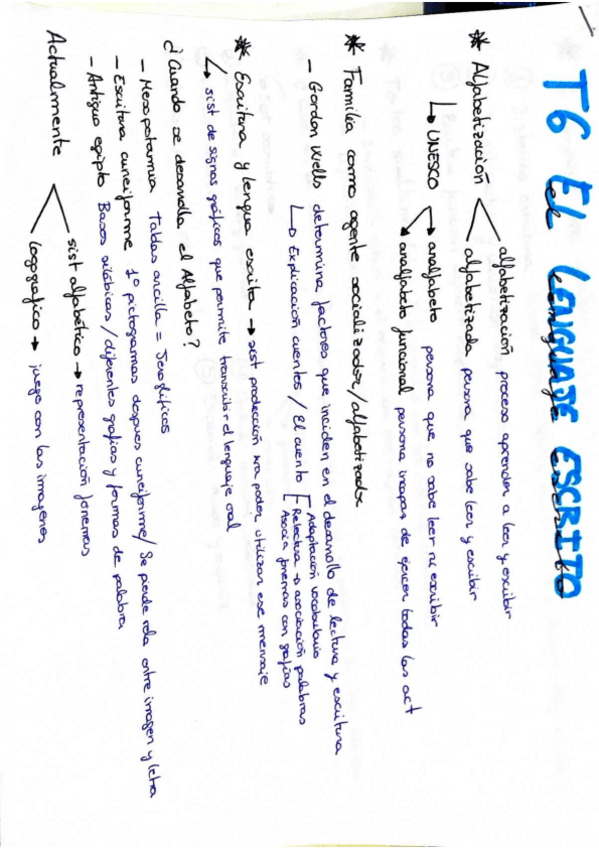 T6 El LENGUAJE ESCRITO
* Alfabetización alfabetización proceso aprender a leer y escribir
alfabetizada persona que sabe leer y escribir
↳ UNESCO analfabeto persona que no sabe leer ni escribir
analfabeto funcional persona incapaz de ejercer todas las act
* Familia como agente socializador/alfabetizador
- Gordon Wells determina factores que inciden en el desarrollo de lectura y escritura
↳ Explicación cuentos / El cuento [ Adaptación vocabulario
Relectura → asociación palabras
Asocia fonemas con grafías
* Escritura y lengua escrita → sist producción para poder utilizar ese mensaje
↳ sist de signos gráficos que permite transcribir el lenguaje oral
¿Cuando se desarrolla el Alfabeto?
- Mesopotamia Tablas arcilla = Jeroglíficos
- Escritura cuneiforme 1º pictogramas despues cuneiforme/ Se pierde rela entre imagen y letra
- Antiguo egipto Bases silábicas / diferentes grafías y formas de palabra
Actualmente sist alfabético → representación fonemas
logografico → juego con las imagenes